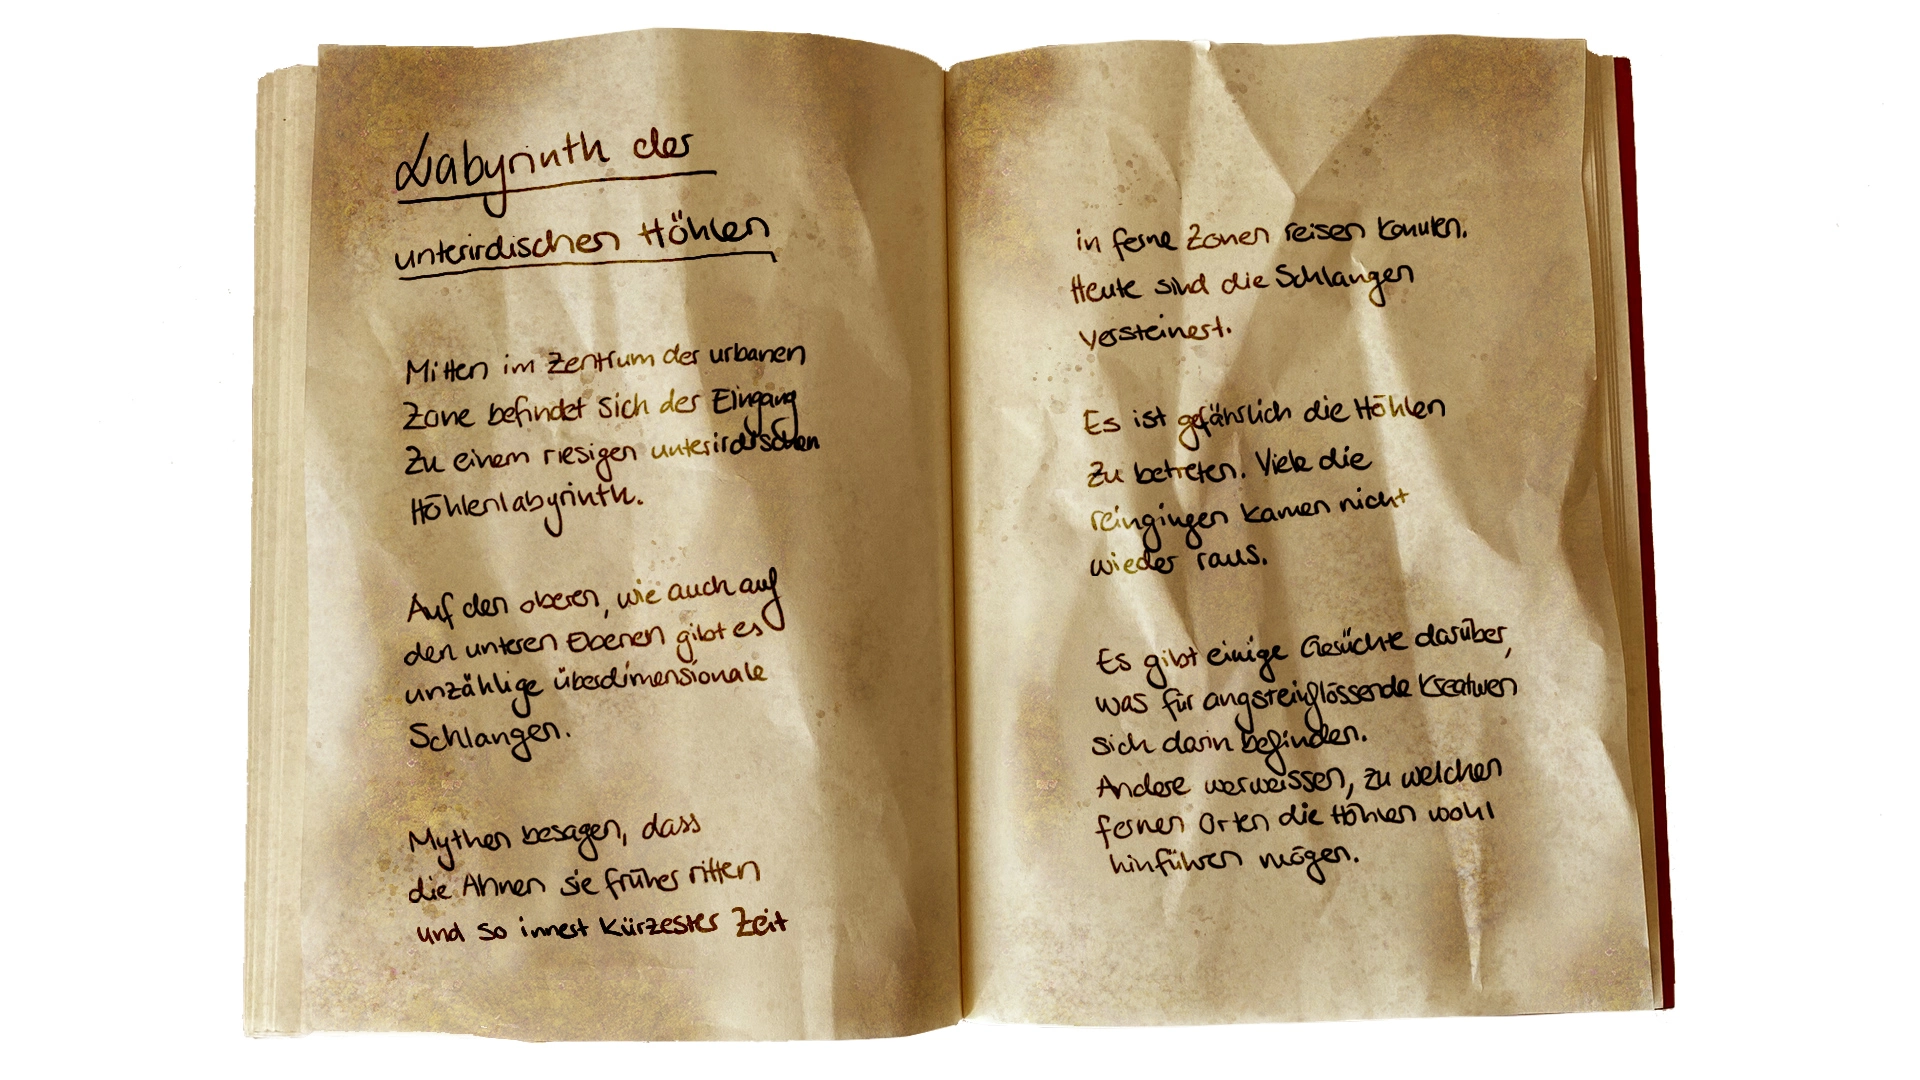 Labyrinth der
unterirdischen Höhlen
Mitten im Zentrum der urbanen
Zone befindet sich der Eingang
zu einem riesigen unterirdischen
Höhlenlabyrinth.
Auf den oberen, wie auch auf
den unteren Ebenen gibt es
unzählige überdimensionale
Schlangen.
Mythen besagen, dass
die Ahnen sie früher ritten
und so innert kürzester Zeit
in ferne Zonen reisen konnten.
Heute sind die Schlangen
versteinert.
Es ist gefährlich die Höhlen
zu betreten. Viele die
reingingen kamen nicht
wieder raus.
Es gibt einige Gerüchte darüber,
was für angsteinflössende Kreaturen
sich darin befinden.
Andere werweissen, zu welchen
fernen Orten die Höhlen wohl
hinführen mögen.